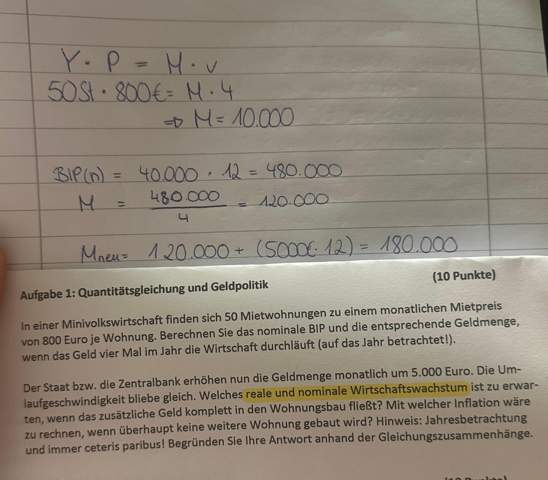 Y · P = M · v
50St · 800€ = M · 4
⇒ M = 10.000
BIP(n) = 40.000 · 12 = 480.000
M = 480.000 / 4 = 120.000
Mneu = 120.000 + (5000€ · 12) = 180.000
(10 Punkte)
Aufgabe 1: Quantitätsgleichung und Geldpolitik
In einer Minivolkswirtschaft finden sich 50 Mietwohnungen zu einem monatlichen Mietpreis
von 800 Euro je Wohnung. Berechnen Sie das nominale BIP und die entsprechende Geldmenge,
wenn das Geld vier Mal im Jahr die Wirtschaft durchläuft (auf das Jahr betrachtet!).
Der Staat bzw. die Zentralbank erhöhen nun die Geldmenge monatlich um 5.000 Euro. Die Um-
laufgeschwindigkeit bliebe gleich. Welches reale und nominale Wirtschaftswachstum ist zu erwar-
ten, wenn das zusätzliche Geld komplett in den Wohnungsbau fließt? Mit welcher Inflation wäre
zu rechnen, wenn überhaupt keine weitere Wohnung gebaut wird? Hinweis: Jahresbetrachtung
und immer ceteris paribus! Begründen Sie Ihre Antwort anhand der Gleichungszusammenhänge.